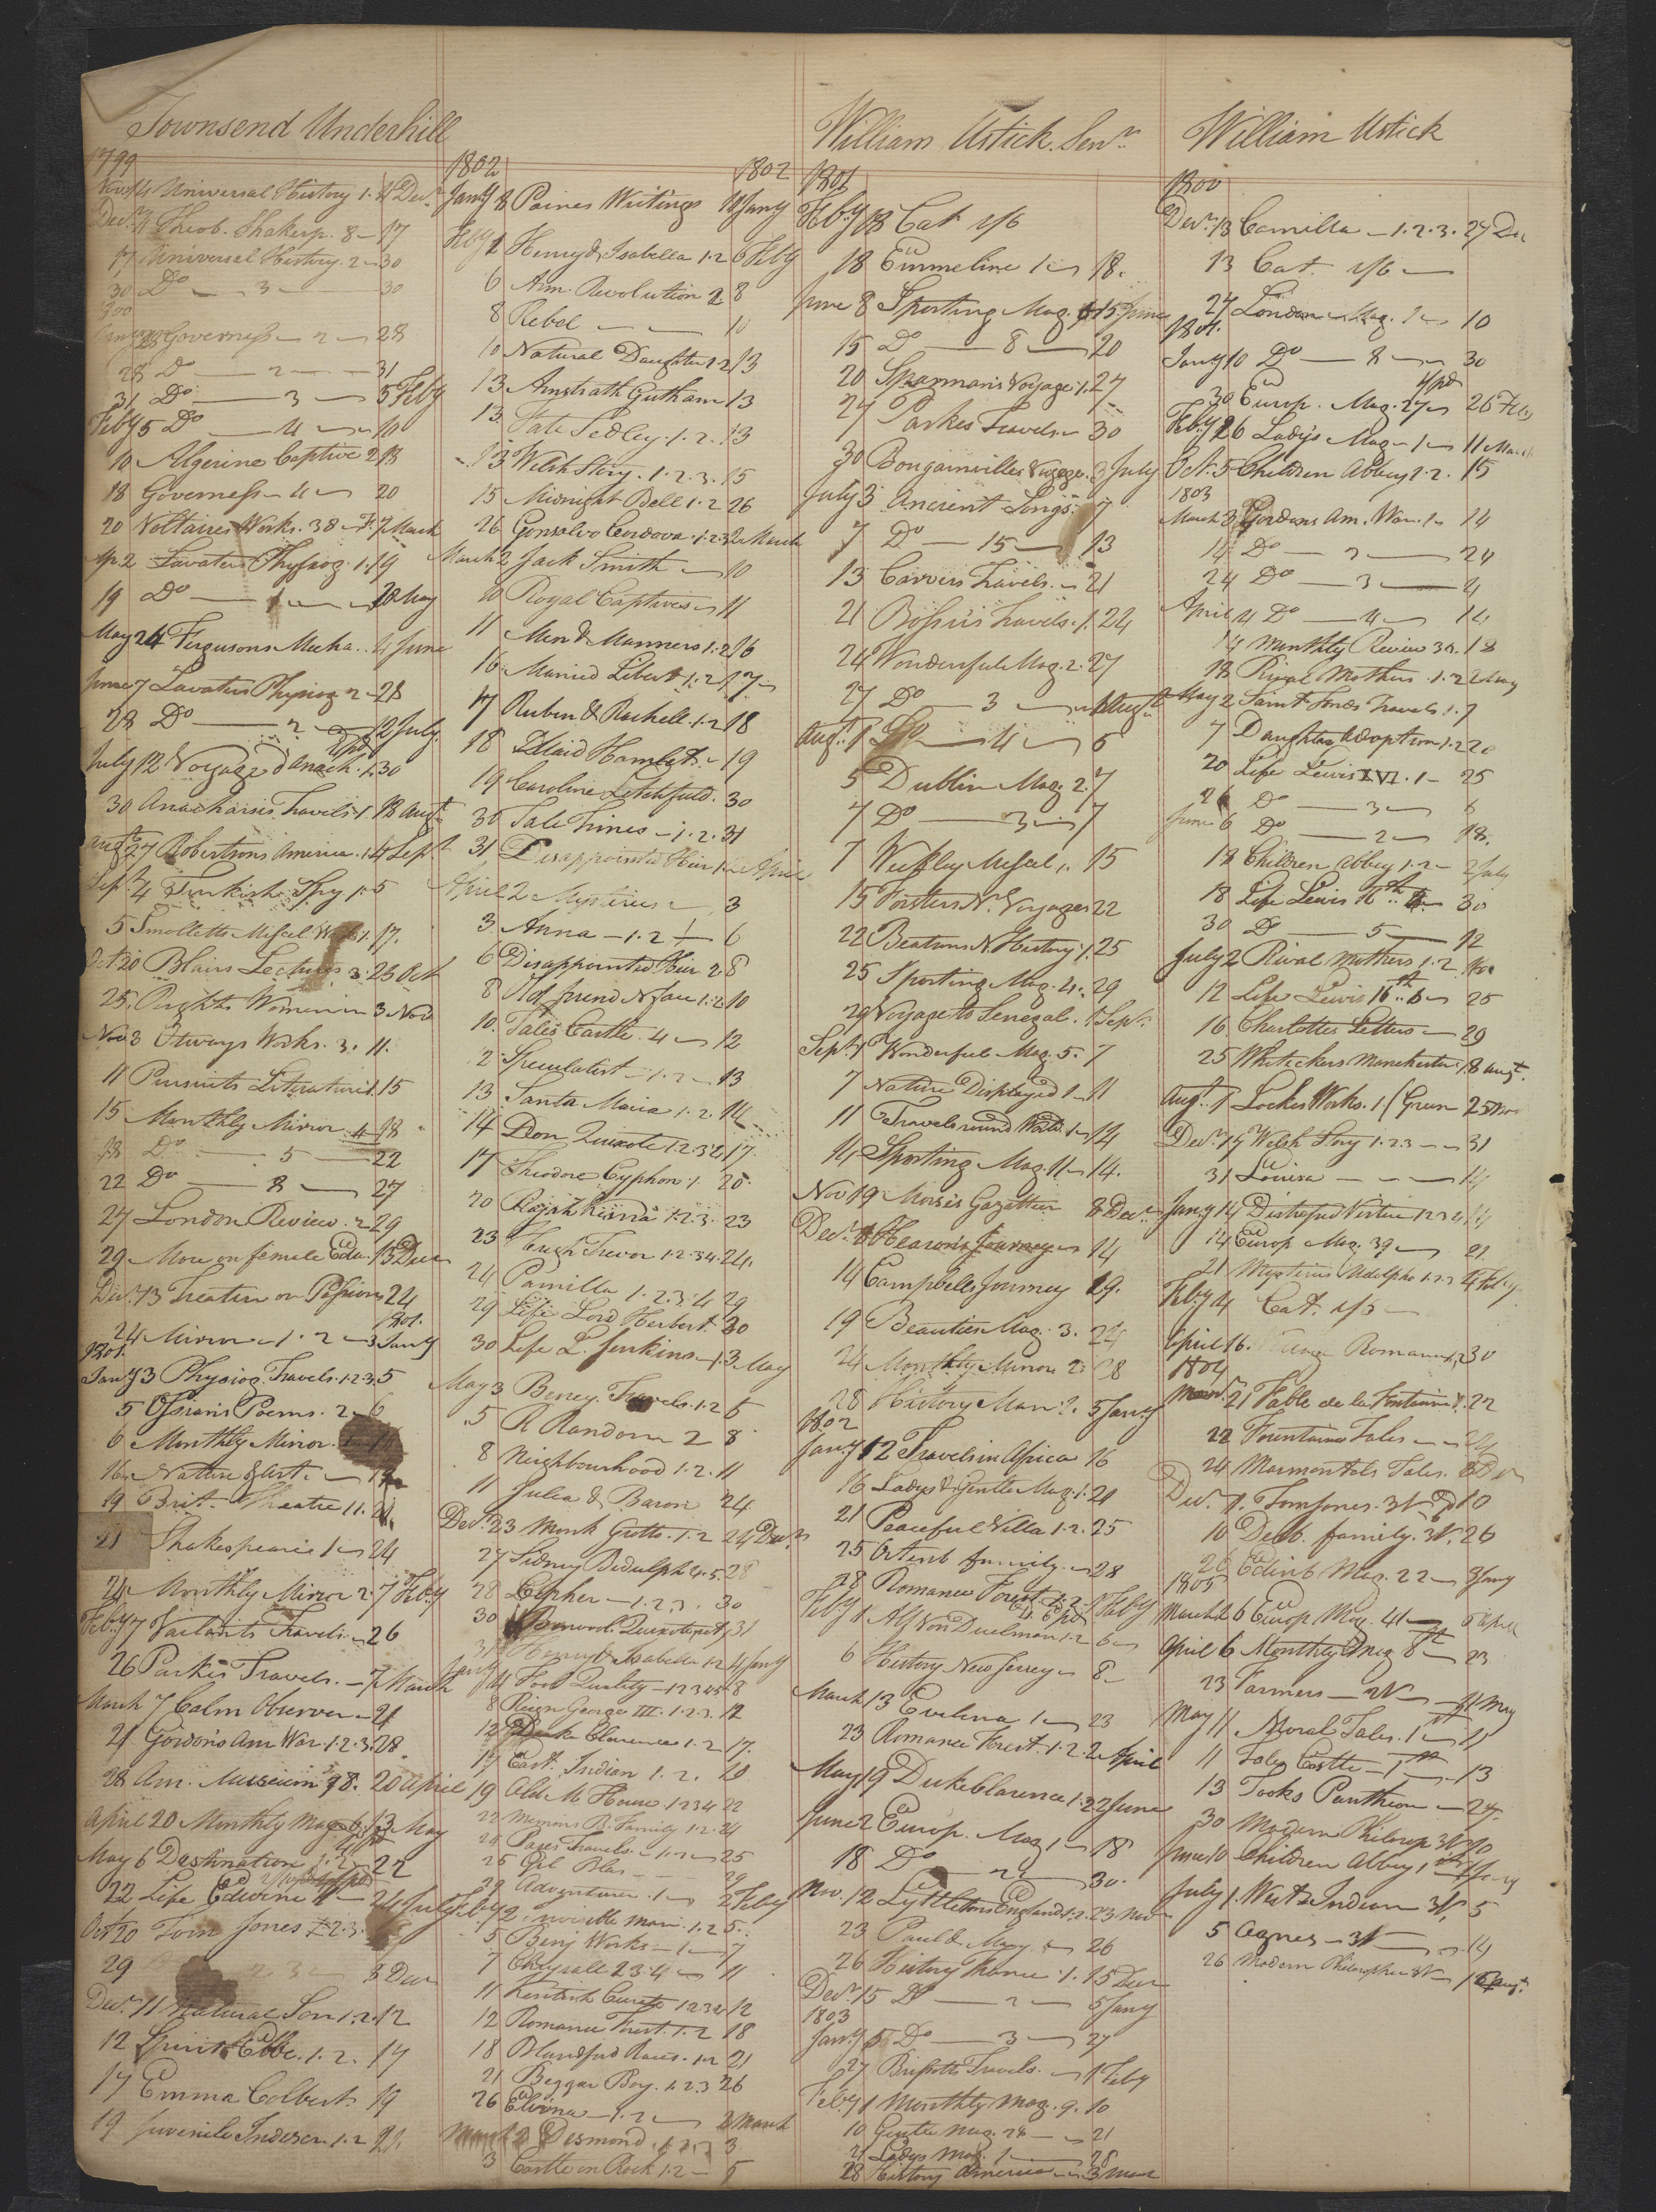 Townsend Underhill
1799
Novr 14 Universal History 1. 11 Decr
Decr 11 Theob. Shakesp. 8 17
17 Universal History. 2 30
30 Do 3 30
28 Governess 2 28
28 Do 2 31
31 Do 3 5 Feby
Feby 5 Do 4 10
10 Algerine Captive 2 18
18 Governess 4 20
20 Voltaires Works. 38 7 March
Ap. 2 Lavaters Physiog. 1. 19
19 Do 1 20 May
May 24 Fergusons Mecha.. 4 June
June 7 Lavaters Physiog 2 28
28 Do 2 12 July
July 12 Voyage d'Anach. 1. 30
30 Anacharsis Travels. 1. 18 Augt
Augt 27 Robertsons America. 1. 4 Sept
Sept 4 Turkish Spy 1. 5
5 Smolletts Miscel Works 1. 17.
Oct 20 Blairs Lectures 3. 25 Oct
25. Rights Women 3 Nov
Nov 3 Otways Works. 3. 11.
11 Pursuits Literature 1. 15
15 Monthly Mirror. 4 18
18 Do 5 22
22 Do 8 27
27 London Review. 2 29
29 More on female Edu. 13 Decr
Decr 13 Treatise on Passions 24
24 Mirror 1. 2 3 Jany
1801.
Jany 3 Physiog. Travels. 1.2.3. 5
5 Ossian's Poems. 2 6
6 Monthly Mirror.
16 Nature & Art.
19 Brit. Theatre 11. 21.
21 Shakespeare 1 24
24 Monthly Mirror 2. 7 Feby
Feby 7 Vailants Travels. 26
26 Parkes Travels. 7 March
March 7 Calm Observer 21
21 Gordon's Am War. 1.2.3. 28.
28 Am. Museum 20 April
April 20 Monthly Mag 6. 13 May
May 6 Destination 1.2 22
22 Life Edwin 24 July
Oct 20 Tom Jones 1.2.3.
29 2 3 3 Decr
Decr 11 Natural Son 1.2. 12
12 Spirit Elbe. 1.2. 17
17 Emma Colbert 19
19 Juvenile Indiscr. 1.2 22.
1802 1802
Jany 8 Paines Writings 11 Jany
Feby 1 Henry & Isabella 1.2 6 Feby
6 Am. Revolution 2 8
8 Rebel 10
10 Natural Daughter 1.2 13
13 Amstrath Gutham 13
13. Fate Sedley. 1.2. 13
13 Welsh Story. 1.2.3. 15
15 Midnight Bell 1.2 26
26 Gonsalvo Cordova. 1.2.3. 2 March
March 2 Jack Smith 10
10 Royal Captives 11
11 Men & Manners 1.2 16
16. Married Libert. 1.2 17
17 Ruben & Rachell. 1.2 18
18 Maid Hamlet. 19
19 Caroline Litchfield. 30
30 Tale Times 1.2. 31
31 Disappointed Heir 1. 2 April
April 2 Mysteries 3
3. Anna 1.2 6
6 Disappointed Heir 2 8
8 Old friend N face 1.2 10
10. Tales Castle. 4 12
2 Speculatist 1.2 13
13 Santa Maria 1.2. 14
14 Don Quixote 1.2.3.4 17.
17 Theodore Cyphon 1. 20.
20 Rajah Kisna 1.2.3. 23
23 Hugh Trevor 1.2.3.4. 24.
24 Pamilla 1.2.3.4 29
29 Life Lord Herbert. 30
30 Life L. Jenkins 1. 3 May
May 3 Beney. Travels. 1.2 5
5 R Random 2 8
8 Neighbourhood 1.2. 11
11 Julia & Baron 24
Decr 23 Monk Grotto. 1.2 24 Decr
27 Sidney Bidulph 4.5. 28
28 Cypher 1.2.3. 30
30 Quixote 31
31 Henry & Isabella 1.2 4 Jany
Jany 4 Fool Quality 1 2 3 4 5 8
8 Reign George III. 1.2.3. 12
12 Duke Clarence 1.2 17.
17 East Indian 1.2. 19
19 Old M House 1 2 3 4 22
22 Memoirs B. Family 1.2. 24
24 Pages Travels. 1.2 25
25 Gil Blas 29
29 Adventurer. 1 2 Feby
Feby 2 Invisible man. 1.2 5.
5 Benj Works 1 7
7 Chrysall 2.3.4 11
11 Kentish Curate 1.2.3.4 12
12 Romance Forest. 1.2 18
18 Blandford Races. 1.2 21
21 Beggar Boy. 1.2.3 26
26 Elvina 1.2 2 March
March 2 Desmond. 1.2.3 3
3 Castle on Rock 1.2 5
William Ustick. Senr
1801
Feby 18 Cat 1/6
18 Emmeline 1 18.
June 8 Sporting Mag. 15 June
15 Do 8 20
20 Sparman's Voyage. 1. 27
27 Parkes Travels 30
30 Bougainvilles Voyage. 3 July
July 3 Ancient Songs. 7
7 Do 15 13
13 Carvers Travels. 21
21 Bossu's Travels. 1. 24
24 Wonderful Mag. 2. 27
27 Do 3 1 Augt
Augt 1 Do 4 5
5 Dublin Mag. 2. 7
7 Do 3 7
7 Weekly Miscel 1. 15
15 Forsters N. Voyages 22
22 Beatsons N. History. 1. 25
25 Sporting Mag. 4. 29
29 Voyage to Senegal. 1 Sept
Sept 1 Wonderful Mag. 5. 7
7 Nature Displayed 1 11
11 Travels round World. 1 14
14 Sporting Mag. 11 14.
Nov 19 Morse's Gazetteer 8 Decr
Decr 8 Hearon's Journey 14
14 Campbells Journey 19.
19 Beauties Mag. 3. 24
24 Monthly Mirror 2 28
28 History Man?. 5 Jany
1802
Jany 12 Travels in Africa 16
16 Ladys & Gentle Mag. 1. 21
21 Peaceful Villa 1.2. 25
25 Ortenb family. 28
28 Romance Forest. 1.2. 1 Feby
Feby 1 Alf Von Duelman 1.2 6
6 History New Jersey 8
March 13 Evelina 1 23
23 Romance Forest. 1.2. 2 April
May 19 Duke Clarence 1.2 2 June
June 2 Europ. Mag 1 18
18 Do 2 30.
Nov. 12 Lyttletons England 1.2. 23 Nov
23 Paul & Mary 26
26 History France. 1. 15 Decr
Decr 15 Do 2 5 Jany
1803
Jany 5 Do 3 27
27 Brissotts Travels. 1 Feby
Feby 1 Monthly Mag. 9. 10
10 Gentle Mag. 28 21
21 Ladys Mag. 1 28
28 History America 3 Mar
William Ustick
1800
Decr 13 Camilla 1.2.3. 27 Dec
13 Cat. 1/6
27 London Mag. 1 10
1801.
Jany 10 Do 8 30
30 Europ. Mag. 27 26 Feby
Feby 26 Lady's Mag 1 11 March
Oct. 5 Children Abbey 1.2. 15
1803
March 3 Gordons Am. War. 1 14
14 Do 2 24
24 Do 3 4
April 4 Do 4 14
14 Monthly Review 30. 18
18 Rival Mothers. 1.2 2 May
May 2 Saint Fonds Travels. 1. 7
7 Daughter Adoption 1.2 20
20 Life Lewis XVI. 1 25
26 Do 3 6
June 6 Do 2 18.
18 Children Abbey 1.2 2 July
18 Life Lewis 16th 30
30 Do 5 12
July 2 Rival Mothers 1.2
12 Life Lewis 16th 6 25
16 Charlottes Letters 29
25 Whitackers Manchester 18 Augt
Augt 1 Lockes Works. 1. 25 Nov
Decr 17 Welsh Story 1.2.3 31
31 Louisa 14
Jany 14 Distressed Virtue 1 2 3 4 14
14 Europ Mag. 39 21
21 Mysteries Udolpho 1.2.3 4 Feby
Feby 4 Cat. 1/6
April 16. Romance 1, 2 30
1804
21 Fable de la Fontaine 1. 22
22 Fountaines Tales 24
24 Marmontels Tales.
Decr 1. Tom Jones. 3V 10
10 Delb. family. 3V. 26
26 Edinb Mag. 22 3 Jany
1805
March 26 Europ Mag. 41 6 April
April 6 Monthly Mag 8 23
23 Farmers 2V 11 May
May 11 Moral Tales. 1st 11
11 Castle 13
13 Tooks Pantheon 27.
30 Modern Philosop 3V 10
June 10 Children Abbey
July 1. West Indian 3V 5
5 Agnes 3V 14
26 Modern Philosopher 3V 16 Augt